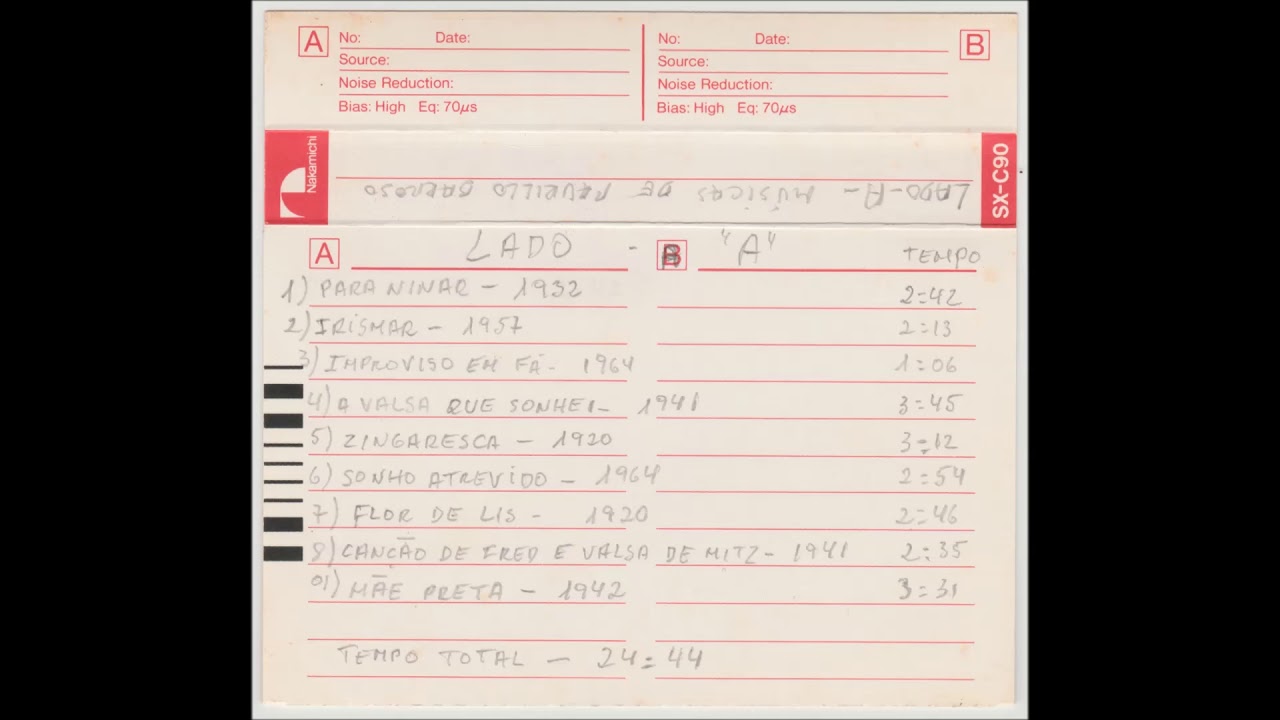 A No: Date:
Source:
Noise Reduction:
Bias: High Eq: 70µs
No: Date: B
Source:
Noise Reduction:
Bias: High Eq: 70µs
Nakamichi
LADO-A- MÚSICAS DE PAURILLO BARROSO
SX-C90
A LADO - B "A" TEMPO
1) PARA NINAR - 1932 2=42
2) IRISMAR - 1957 2=13
3) IMPROVISO EM FÁ - 1964 1:06
4) A VALSA QUE SONHEI - 1941 3=45
5) ZINGARESCA - 1920 3=12
6) SONHO ATREVIDO - 1964 2=54
7) FLOR DE LIS - 1920 2=46
8) CANCÃO DE FRED E VALSA DE MITZ - 1941 2:35
01) MÃE PRETA - 1942 3=31
TEMPO TOTAL - 24=44